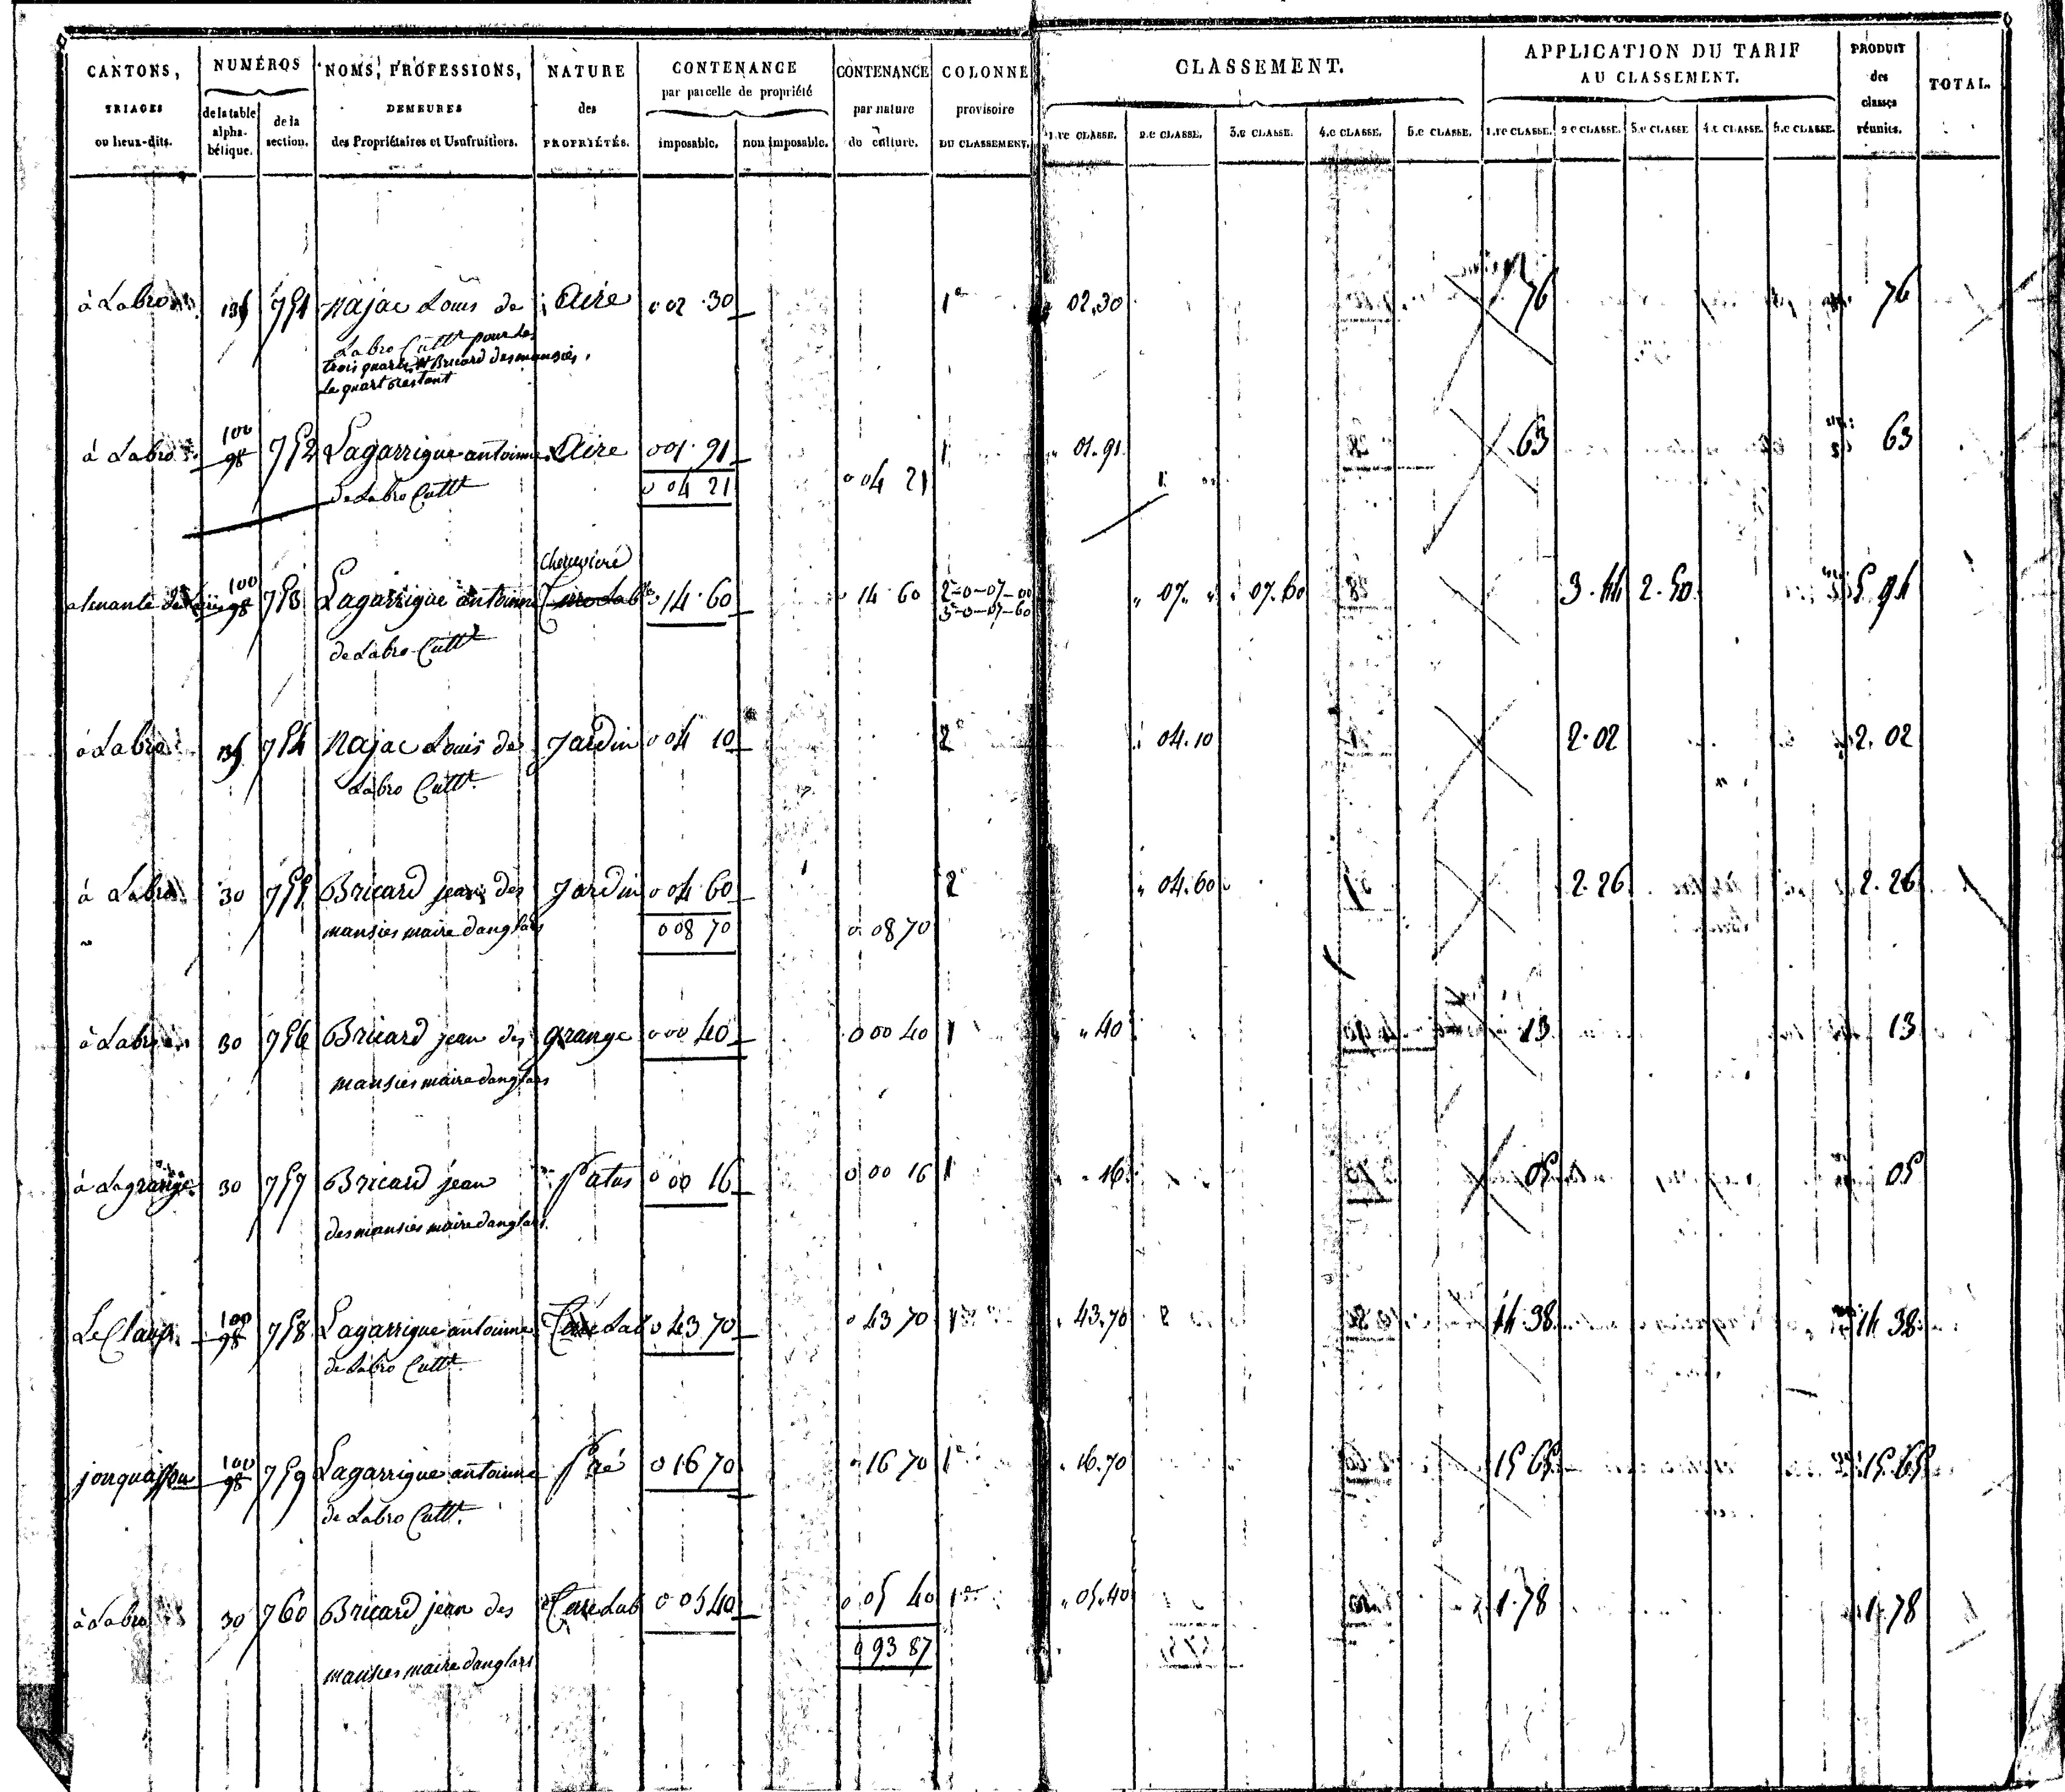 CANTONS, TRIAGES ou lieux-dits.
NUMÉROS
de la table alphabétique.
de la section.
NOMS, PROFESSIONS, DEMEURES des Propriétaires et Usufruitiers.
NATURE des PROPRIÉTÉS.
CONTENANCE par parcelle de propriété
imposable.
non imposable.
CONTENANCE par nature de culture.
COLONNE provisoire DU CLASSEMENT.
CLASSEMENT.
1.re CLASSE. 2.e CLASSE. 3.e CLASSE. 4.e CLASSE. 5.e CLASSE.
APPLICATION DU TARIF AU CLASSEMENT.
1.re CLASSE. 2.e CLASSE. 3.e CLASSE 4.e CLASSE. 5.e CLASSE.
PRODUIT des classes réunies.
TOTAL.
à Labro 751 Najac Louis de Aire 0 02 30 1e 02.30 76 76
Labro Cultr pour les
trois quarts et Bricard des mansiés
Le quart restant
à Labro 100 98 752 Lagarrigue antoine Aire 0 01 91 1 01.91 63 63
de Labro Cultr 0 04 21 0 04 21
Cheneviere
atenante 100 98 753 Lagarrigue antoine Terre Lab 0 14 60 0 14 60 2e 0-07-00 07 07.60 3.44 2.50 5.94
3e 0-07-60
de Labro Cultr
à Labro 754 Najac Louis de Jardin 0 04 10 2e 04.10 2.02 2.02
Labro Cultr
à Labro 30 755 Bricard jean des Jardin 0 04 60 2e 04.60 2.26 2.26
mansies maire danglars 0 08 70 0 08 70
à Labro 30 756 Bricard jean des grange 0 00 40 0 00 40 1 40 13 13
mansies maire danglars
à Lagrange 30 757 Bricard jean Patus 0 00 16 0 00 16 1 16 05 05
des mansies maire danglars
Le Claux 100 98 758 Lagarrigue antoine Terre Lab 0 43 70 0 43 70 1e 43.70 14.38 14.38
de Labro Cultr
100 98 759 Lagarrigue antoine Pré 0 16 70 0 16 70 1e 16.70 15.65 15.65
de Labro Cultr.
à Labro 30 760 Bricard jean des Terre Lab 0 05 40 0 05 40 1e 05.40 1.78 1.78
mansies maire danglars 0 93 87